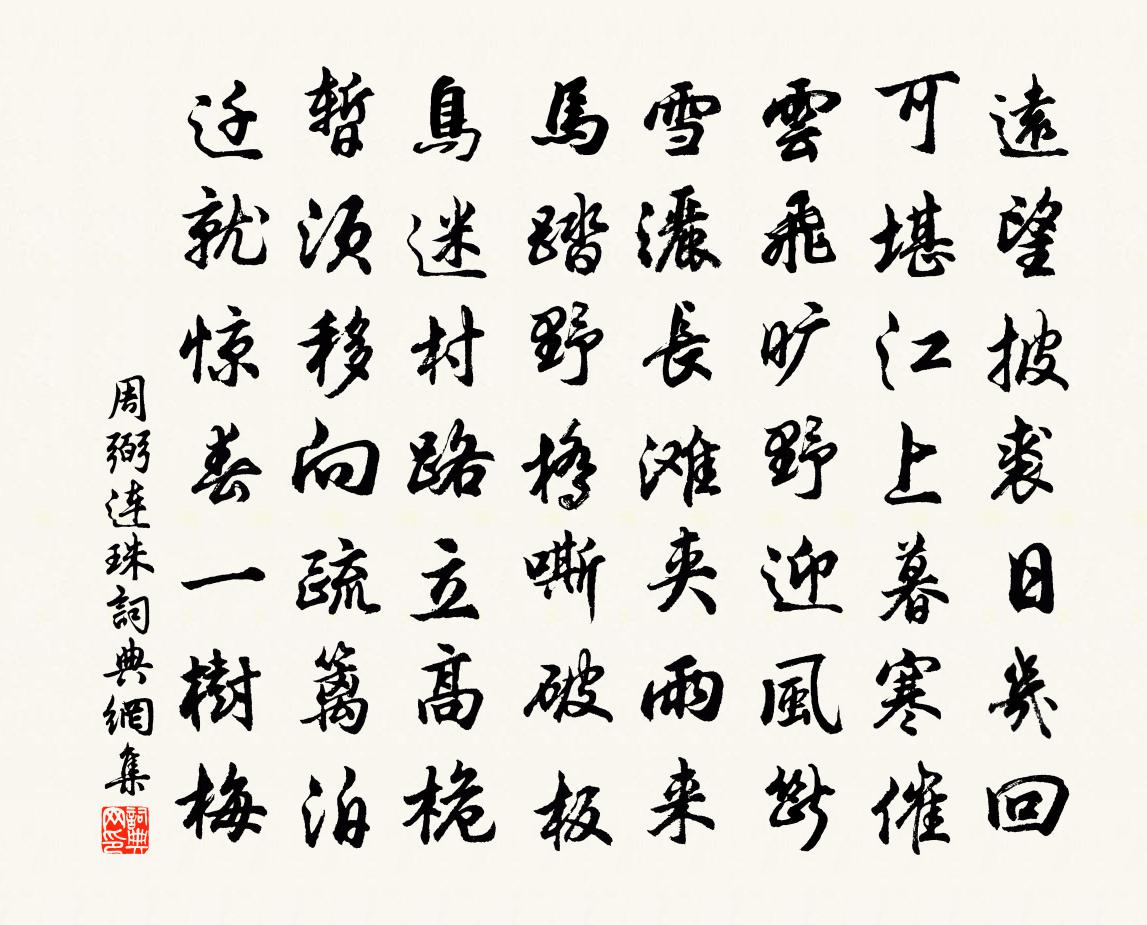 遠望披裘日幾回
可堪江上暮寒催
雲飛旷野迎風斷
雪灑長滩夾雨来
馬踏野橋嘶破板
鳥迷村路立高桅
暫须移向疏篱泊
迁就惊春一樹梅
周弼连珠詞典網集
詞典网印